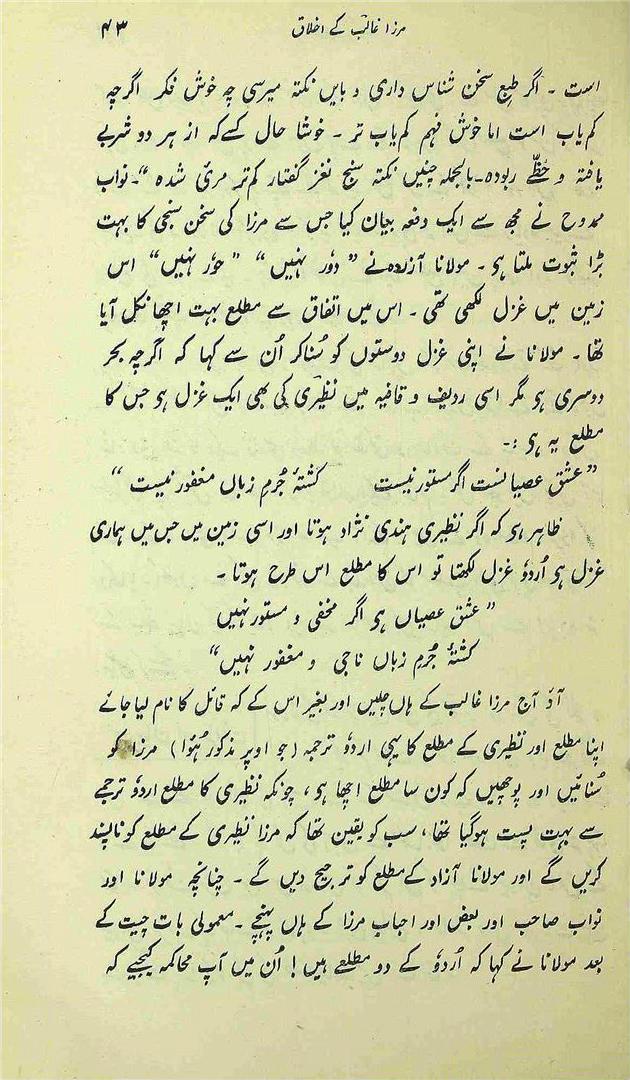 مرزا غالبؔ کے اخلاق ۴۳
است ۔ اگر طبع سخن شناس داری و بایں نکتہ میرسی چہ خوش فکر اگرچہ
کم یاب است اما خوش فہم کم یاب تر ۔ خوشا حال کسے کہ از ہر دو شربے
یافتہ و حظّے ربودہ ۔ بالجملہ چنیں نکتہ سنج نغز گفتار کم تر مرئ شدہ “۔ نواب
ممدوح نے مجھ سے ایک دفعہ بیان کیا جس سے مرزا کی سخن سنجی کا بہت
بڑا ثبوت ملتا ہی ۔ مولانا آزردہ نے ” دوٗر نہیں “ ” حوٗر نہیں “ اس
زمین میں غزل لکھی تھی ۔ اس میں اتفاق سے مطلع بہت اچھا نکل آیا
تھا ۔ مولانا نے اپنی غزل دوستوں کو سُناکر اُن سے کہا کہ اگرچہ بحر
دوسری ہی مگر اسی ردیف و قافیہ میں نظیری کی بھی ایک غزل ہی جس کا
مطلع یہ ہی :۔
” عشق عصیانست اگر مستور نیست کشتۂ جُرمِ زباں مغفور نیست “
ظاہر ہی کہ اگر نظیری ہندی نژاد ہوتا اور اسی زمین میں جس میں ہماری
غزل ہی اُردوٗ غزل لکھتا تو اس کا مطلع اس طرح ہوتا ۔
” عشق عصیاں ہی اگر مخفی و مستور نہیں
کشتۂ جُرمِ زباں ناجی و مغفور نہیں “
آؤ آج مرزا غالب کے ہاں چلیں اور بغیر اس کے کہ قائل کا نام لیا جائے
اپنا مطلع اور نظیری کے مطلع کا یہی اردوٗ ترجمہ (جو اوپر مذکور ہُوا) مرزا کو
سُنائیں اور پوچھیں کہ کون سا مطلع اچھا ہی ، چونکہ نظیری کا مطلع اردوٗ ترجمے
سے بہت پست ہوگیا تھا ، سب کو یقین تھا کہ مرزا نظیری کے مطلع کو ناپسند
کریں گے اور مولانا آزاد کے مطلع کو ترجیح دیں گے ۔ چنانچہ مولانا اور
نواب صاحب اور بعض اور احباب مرزا کے ہاں پہنچے ۔ معمولی بات چیت کے
بعد مولانا نے کہا کہ اُردوٗ کے دو مطلعے ہیں ! اُن میں آپ محاکمہ کیجیے کہ